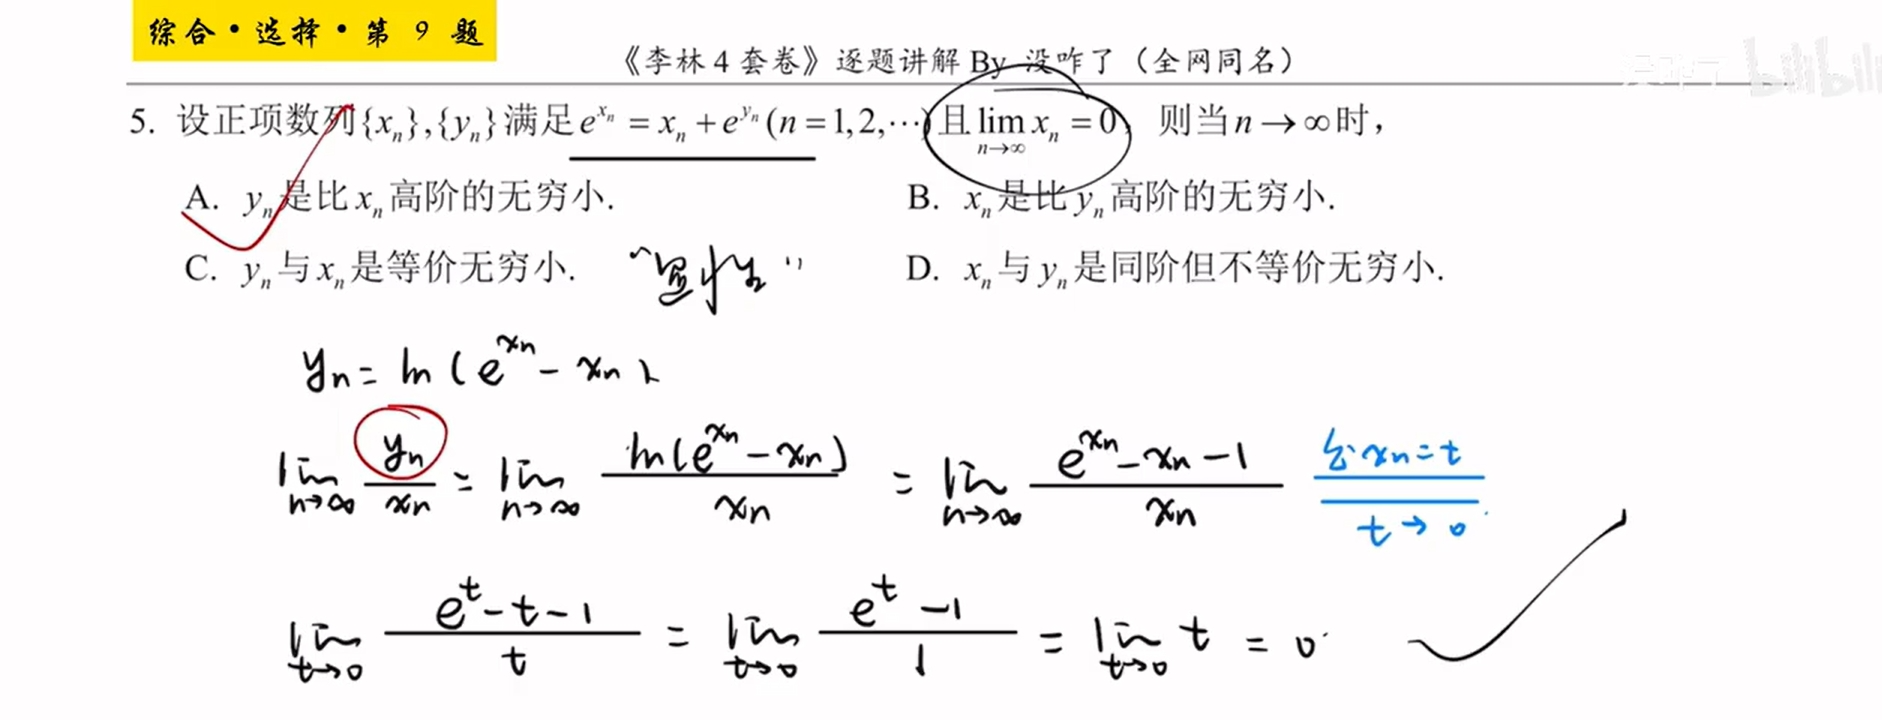 综合·选择·第 9 题
《李林4套卷》逐题讲解 By 没咋了（全网同名）
bilibili
5. 设正项数列{xₙ},{yₙ}满足 e^{xₙ} = xₙ + e^{yₙ} (n = 1,2,⋯) 且 lim_{n→∞} xₙ = 0, 则当 n → ∞ 时,
A. yₙ 是比 xₙ 高阶的无穷小. B. xₙ 是比 yₙ 高阶的无穷小.
C. yₙ 与 xₙ 是等价无穷小. D. xₙ 与 yₙ 是同阶但不等价无穷小.
yₙ = ln(e^{xₙ} - xₙ)
lim_{n→∞} yₙ/xₙ = lim_{n→∞} ln(e^{xₙ} - xₙ)/xₙ = lim_{n→∞} (e^{xₙ} - xₙ - 1)/xₙ 令 xₙ = t t→0
lim_{t→0} (e^t - t - 1)/t = lim_{t→0} (e^t - 1)/1 = lim_{t→0} t = 0